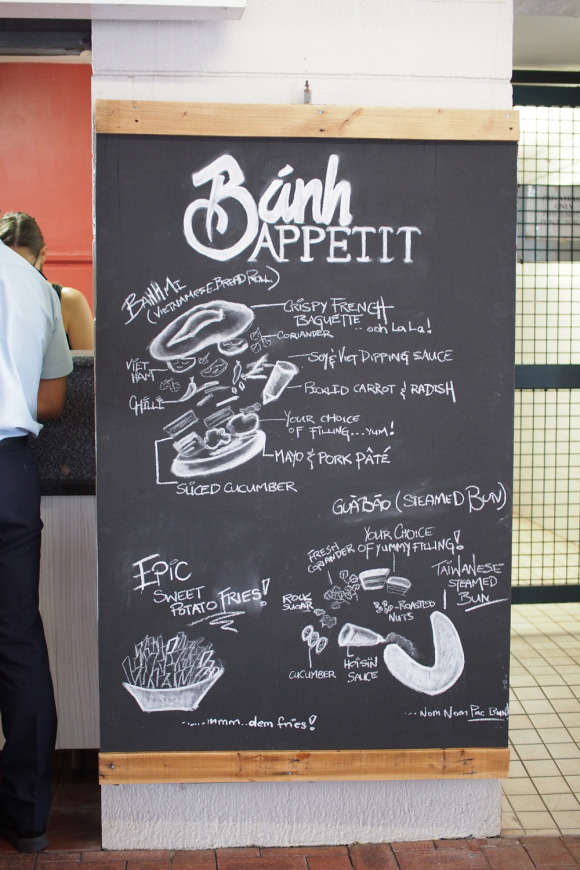 Bánh
APPETIT
BÁNH MI
(VIETNAMESE BREAD ROLL)
CRISPY FRENCH
BAGUETTE
..ooh La La!
CORIANDER
SOY & VIET DIPPING SAUCE
VIET
HAM
PICKLED CARROT & RADISH
CHILLI
YOUR CHOICE
OF FILLING...YUM!
MAYO & PORK PÂTÉ
SLICED CUCUMBER
GUÀBÃO (STEAMED BUN)
YOUR CHOICE
OF YUMMY FILLING!
FRESH
CORIANDER
TAIWANESE
STEAMED
BUN
EPIC
SWEET
POTATO FRIES!
ROCK
SUGAR
ROASTED
NUTS
CUCUMBER
HOISIN
SAUCE
...Nom Nom Pac Bun!
......mmm..dem fries!